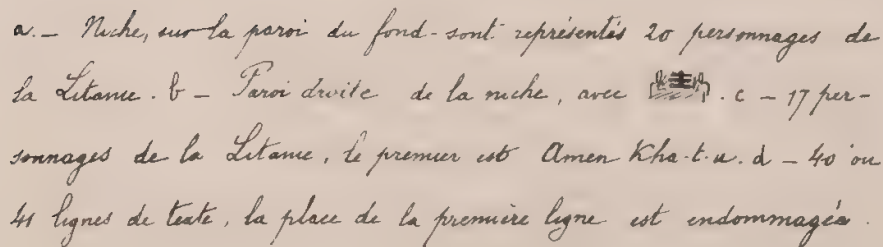 a. – Niche, sur la paroi du fond - sont représentés 20 personnages de
la Litanie. b – Paroi droite de la niche, avec . c – 17 per-
sonnages de la Litanie, le premier est Amen Kha.t.u. d – 40 ou
41 lignes de texte, la place de la première ligne est endommagée.